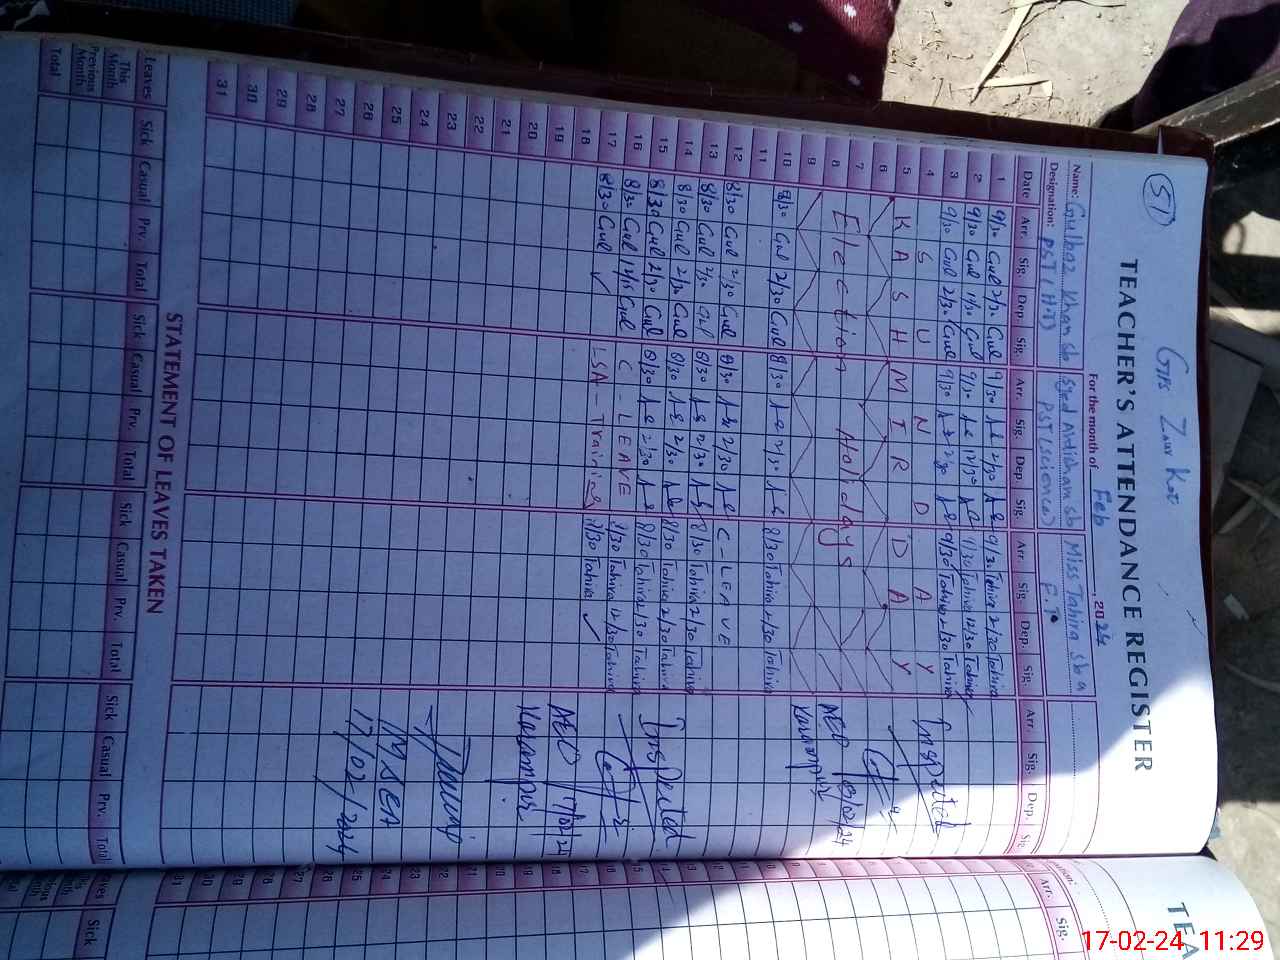 51
GPS Zaur Kot
TEACHER'S ATTENDANCE REGISTER
For the month of Feb, 2024
Name: Gulbaz Khan sb Syed Ahtisham sb Miss Tahira sb a
Designation: PST(HT) PST(science) E.T
Date Arr. Sig. Dep. Sig. Arr. Sig. Dep. Sig. Arr. Sig. Dep. Sig. Arr. Sig. Dep. Sig.
1 9/30 Gul 2/30 Gul 9/30 2/30 9/30 Tahira 2/30 Tahira
2 9/30 Gul 12/30 Gul 9/30 12/30 9/30 Tahira 12/30 Tahira
3 9/30 Gul 2/30 Gul 9/30 2/30 9/30 Tahira 2/30 Tahira
4 S U N D A Y
5 K A S H M I R D A Y
6
7 Election Holidays
8
9
10 8/30 Gul 2/30 Gul 8/30 2/30 8/30 Tahira 2/30 Tahira
11
12 8/30 Gul 2/30 Gul 8/30 2/30 C-LEAVE
13 8/30 Gul 2/30 Gul 8/30 2/30 8/30 Tahira 2/30 Tahira
14 8/30 Gul 2/30 Gul 8/30 2/30 8/30 Tahira 2/30 Tahira
15 8/30 Gul 2/30 Gul 8/30 2/30 8/30 Tahira 2/30 Tahira
16 8/30 Gul 12/15 Gul C-LEAVE 8/30 Tahira 12/30 Tahira
17 8/30 Gul LSA-Training 8/30 Tahira
18
19
20
21
22
23
24
25
26
27
28
29
30
31
Inspected
AEO
Karampur
Inspected
AEO 17/02/24
Karampur
MSEA
17/02/2024
STATEMENT OF LEAVES TAKEN
Leaves Sick Casual Prv. Total Sick Casual Prv. Total Sick Casual Prv. Total Sick Casual Prv. Total
This Month
Previous Month
Total
TEA
Arr. Sig.
Sick
17-02-24 11:29